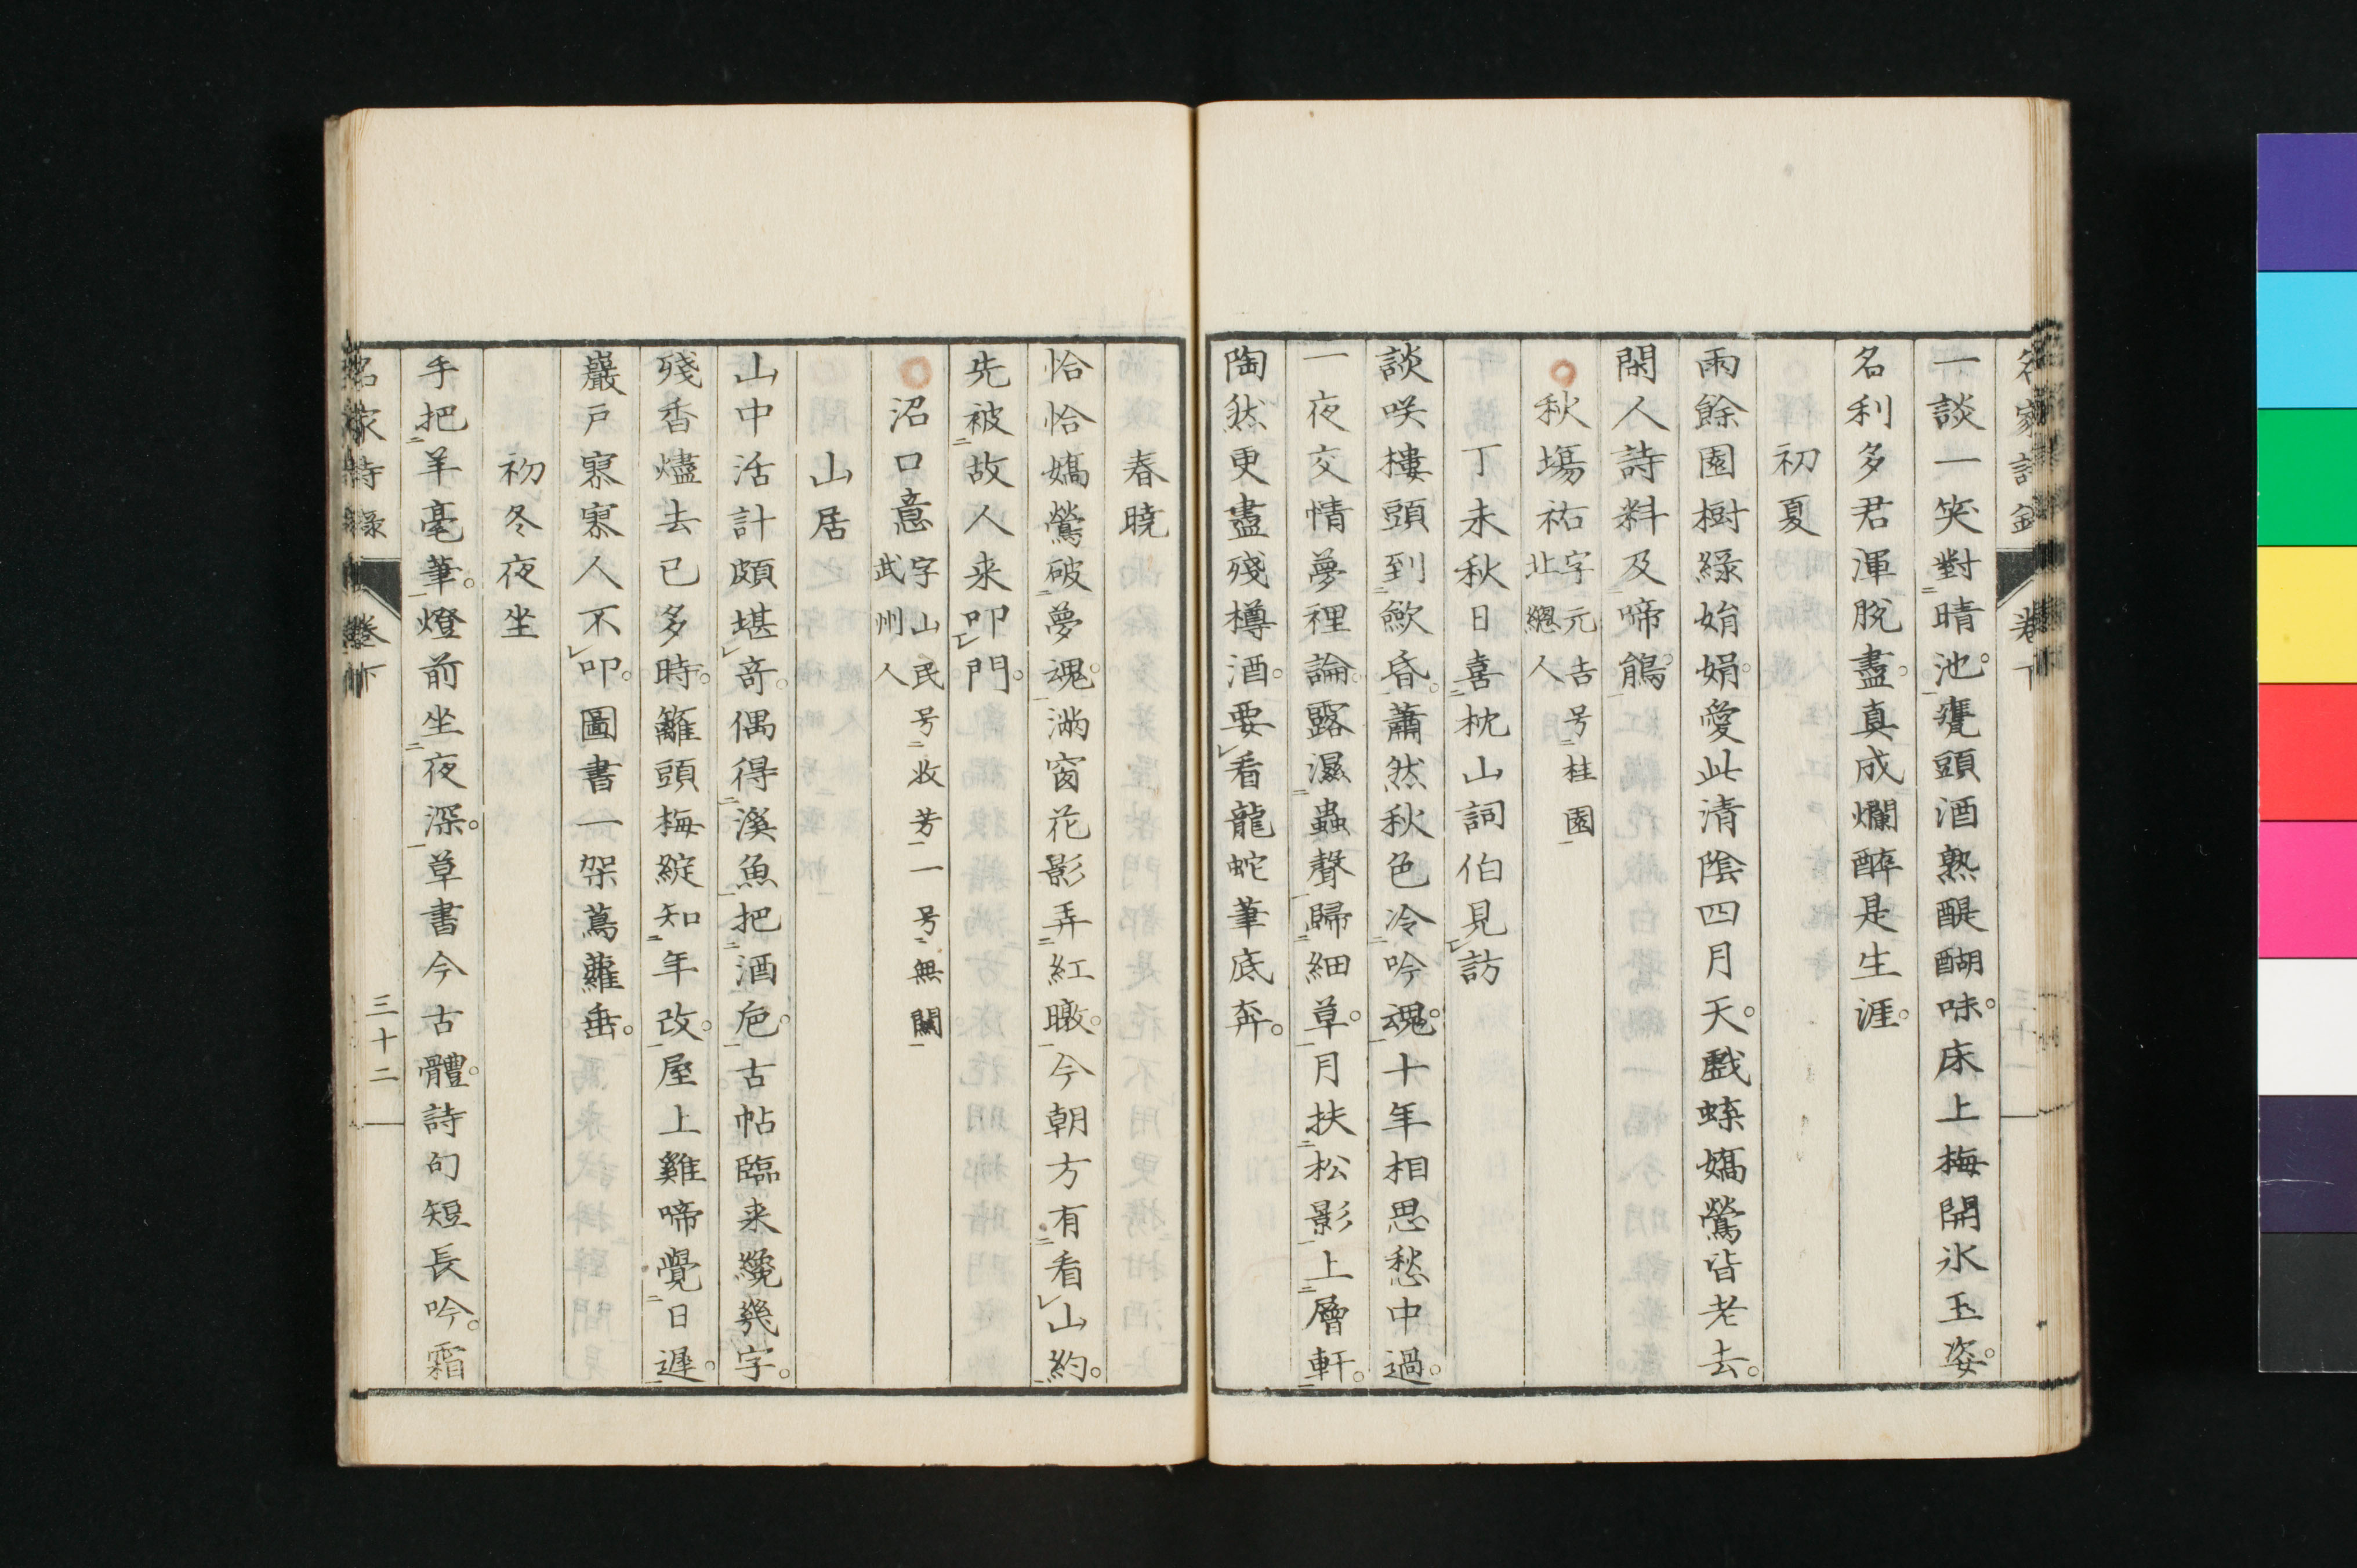 一談一笑對晴池。甕頭酒熟醍醐味。床上梅開氷玉姿。
名利多君渾脫盡。真成爛醉是生涯。
初夏
雨餘園樹綠娟娟。愛此清陰四月天。戲蝶嬌鶯皆老去。
閑人詩料及啼鵑。
秋場祐 字元吉号桂園
北總人
丁未秋日喜枕山詞伯見訪
談咲樓頭到歛昏。蕭然秋色冷吟魂。十年相思愁中過。
一夜交情夢裡論。露濕蟲聲歸細草。月扶松影上層軒。
陶然更盡殘樽酒。要看龍蛇筆底奔。
春曉
恰恰嬌鶯破夢魂。滿窗花影弄紅暾。今朝方有看山約。
先被故人来叩門。
沼口意 字山民号收芳一号無關
武州人
山居
山中活計頗堪奇。偶得溪魚把酒卮。古帖臨来纔幾字。
殘香燼去已多時。籬頭梅綻知年改。屋上雞啼覺日遲。
巖戶寥寥人不叩。圖書一架蔦蘿垂。
初冬夜坐
手把羊毫筆。燈前坐夜深。草書今古體。詩句短長吟。霜
名家詩錄 卷下 三十二